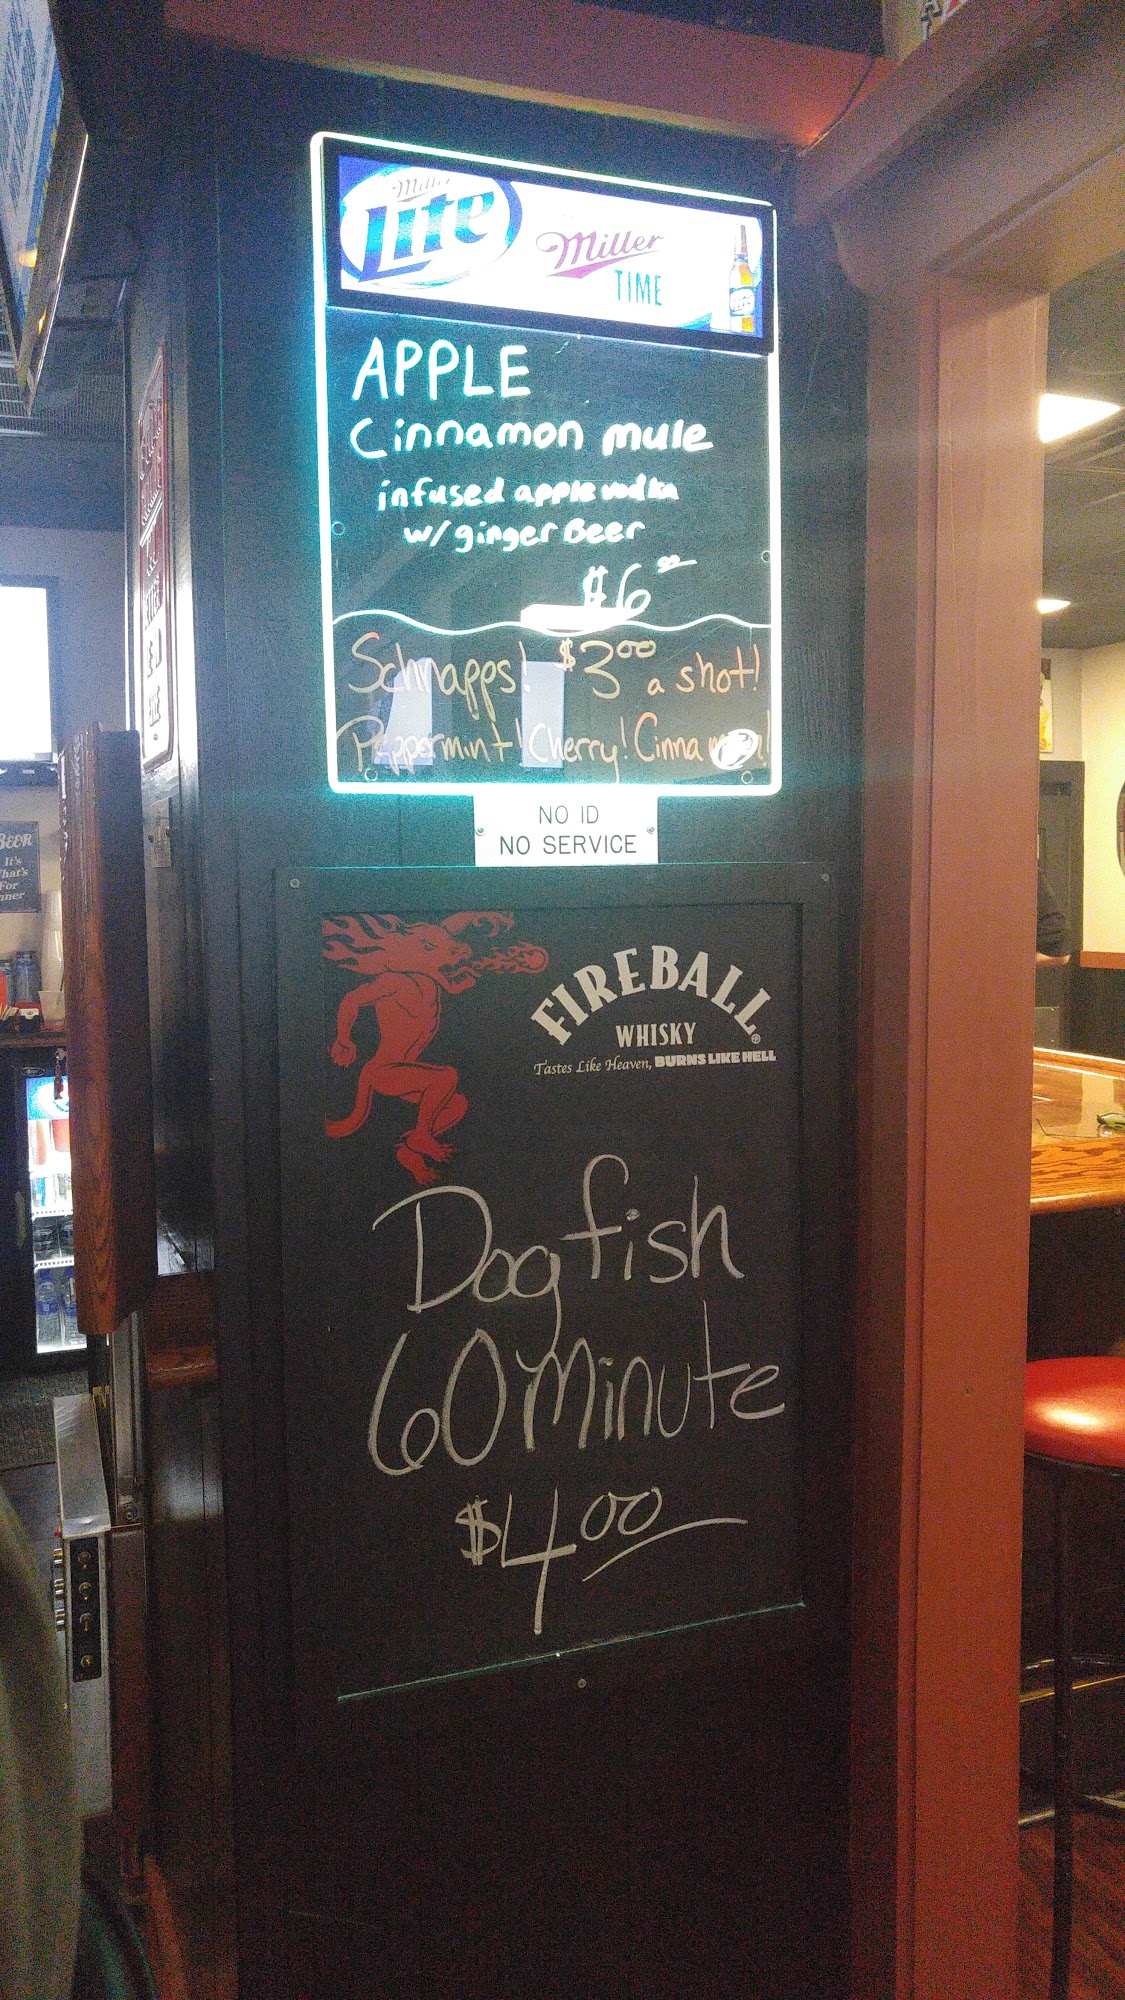 Miller
Lite
Miller
TIME
APPLE
Cinnamon mule
infused apple vodka
w/ ginger Beer
$6.00
Schnapps! $3.00 a shot!
Peppermint! Cherry! Cinnamon!
NO ID
NO SERVICE
FIREBALL®
WHISKY
Tastes Like Heaven, BURNS LIKE HELL
Dogfish
60 minute
$4.00
BEER
It's
What's
For